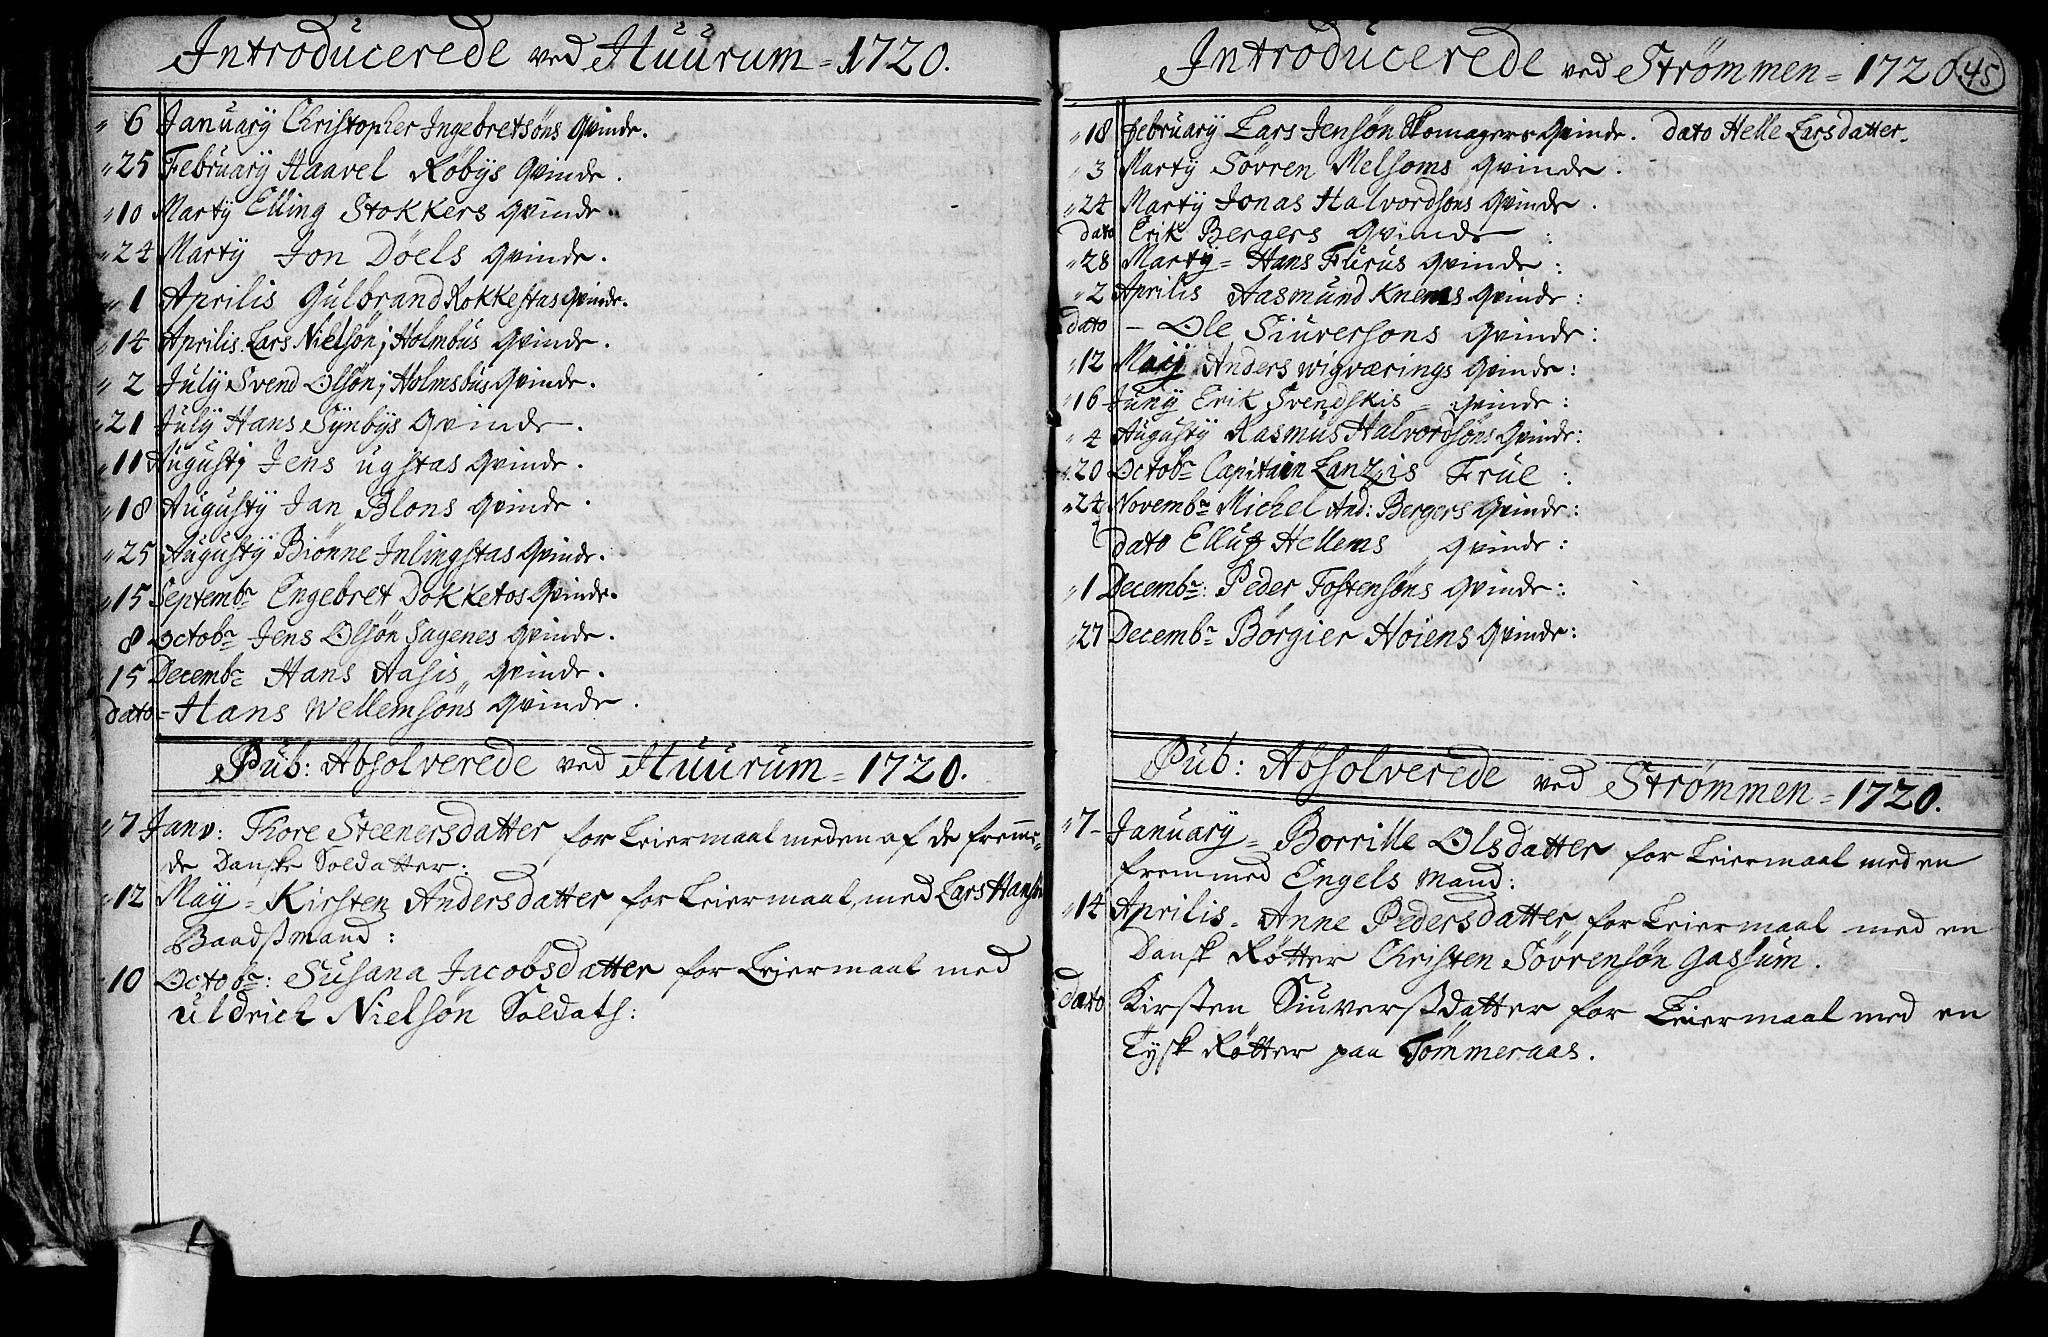 Introducerede ved Huurum = 1720.
" 6 January Christopher Ingebretsöns Qvinde.
" 25 February Haavel Röbÿs Qvinde.
" 10 Martÿ Elling Stokkers Qvinde.
" 24 Martÿ Jon Döels Qvinde.
" 1 Aprilis Gulbrand Rokkestas Qvinde.
" 14 Aprilis. Lars Nielsön i Holmbus Qvinde.
" 2 July Svend Olsön i Holmsbus Qvinde.
" 21 July Hans Sÿnbÿs Qvinde.
" 11 Augusti Jens ugstas Qvinde.
" 18 Augustÿ Jan Blons Qvinde.
" 25 Augustÿ Biönne Inlingstas Qvinde.
" 15 Septembr Engebret Dokketos Qvinde.
8 Octobr Jens Olsön Sagenes Qvinde.
15 Decembr Hans Aasis Qvinde.
dato = Hans Wellemsöns Qvinde.
Pub: Absolverede ved Huurum = 1720.
" 7 Janv: Thore Steenersdatter for Leiermaal med en af de fremme=
de Danske Soldatter:
" 12 Maÿ = Kirsten Andersdatter for Leiermaal, med Lars Hansön
Baadßmand:
" 10 Octobr: Susana Jacobsdatter for Leiermaal med
uldrich Nielsön Soldats:
Introducerede ved Strømmen = 1720 45
" 18 February Lars Jensön Skomagers Qvinde. dato Helle Larsdatter.
" 3 Martÿ Sövren Melsoms Qvinde.
" 24 Martÿ Jonas Halvordsöns Qvinde.
dato Erik Bergers Qvinde :
" 28 Martÿ = Hans Furus Qvinde :
" 2 Aprilis Aasmund Knems Qvinde :
dato - Ole Siuversons Qvinde :
" 12 Maÿ Anders wigværings Qvinde :
" 16 Junÿ Erik Svendskis - Qvinde :
" 4 Augustÿ Rasmus Halvordsöns Qvinde :
" 20 Octobr Capitain Lanzis Frue :
" 24 Novembr Michel And: Bergers Qvinde :
dato Elluf Hellems Qvinde :
" 1 Decembr: Peder Tostensöns Qvinde :
" 27 Decembr Börgier Höiens Qvinde :
Pub: Absolverede ved Strømmen = 1720.
" 7 - January = Borrille Olsdatter for Leiermaal med en
fremmed Engels Mand :
" 14 Aprilis = Anne Pedersdatter for Leiermaal med en
Dansk Rötter Christen Sövrensön Gassum.
dato Kirsten Siuverßdatter for Leiermaal med en
Tÿsk Rötter paa Tömmeraas.